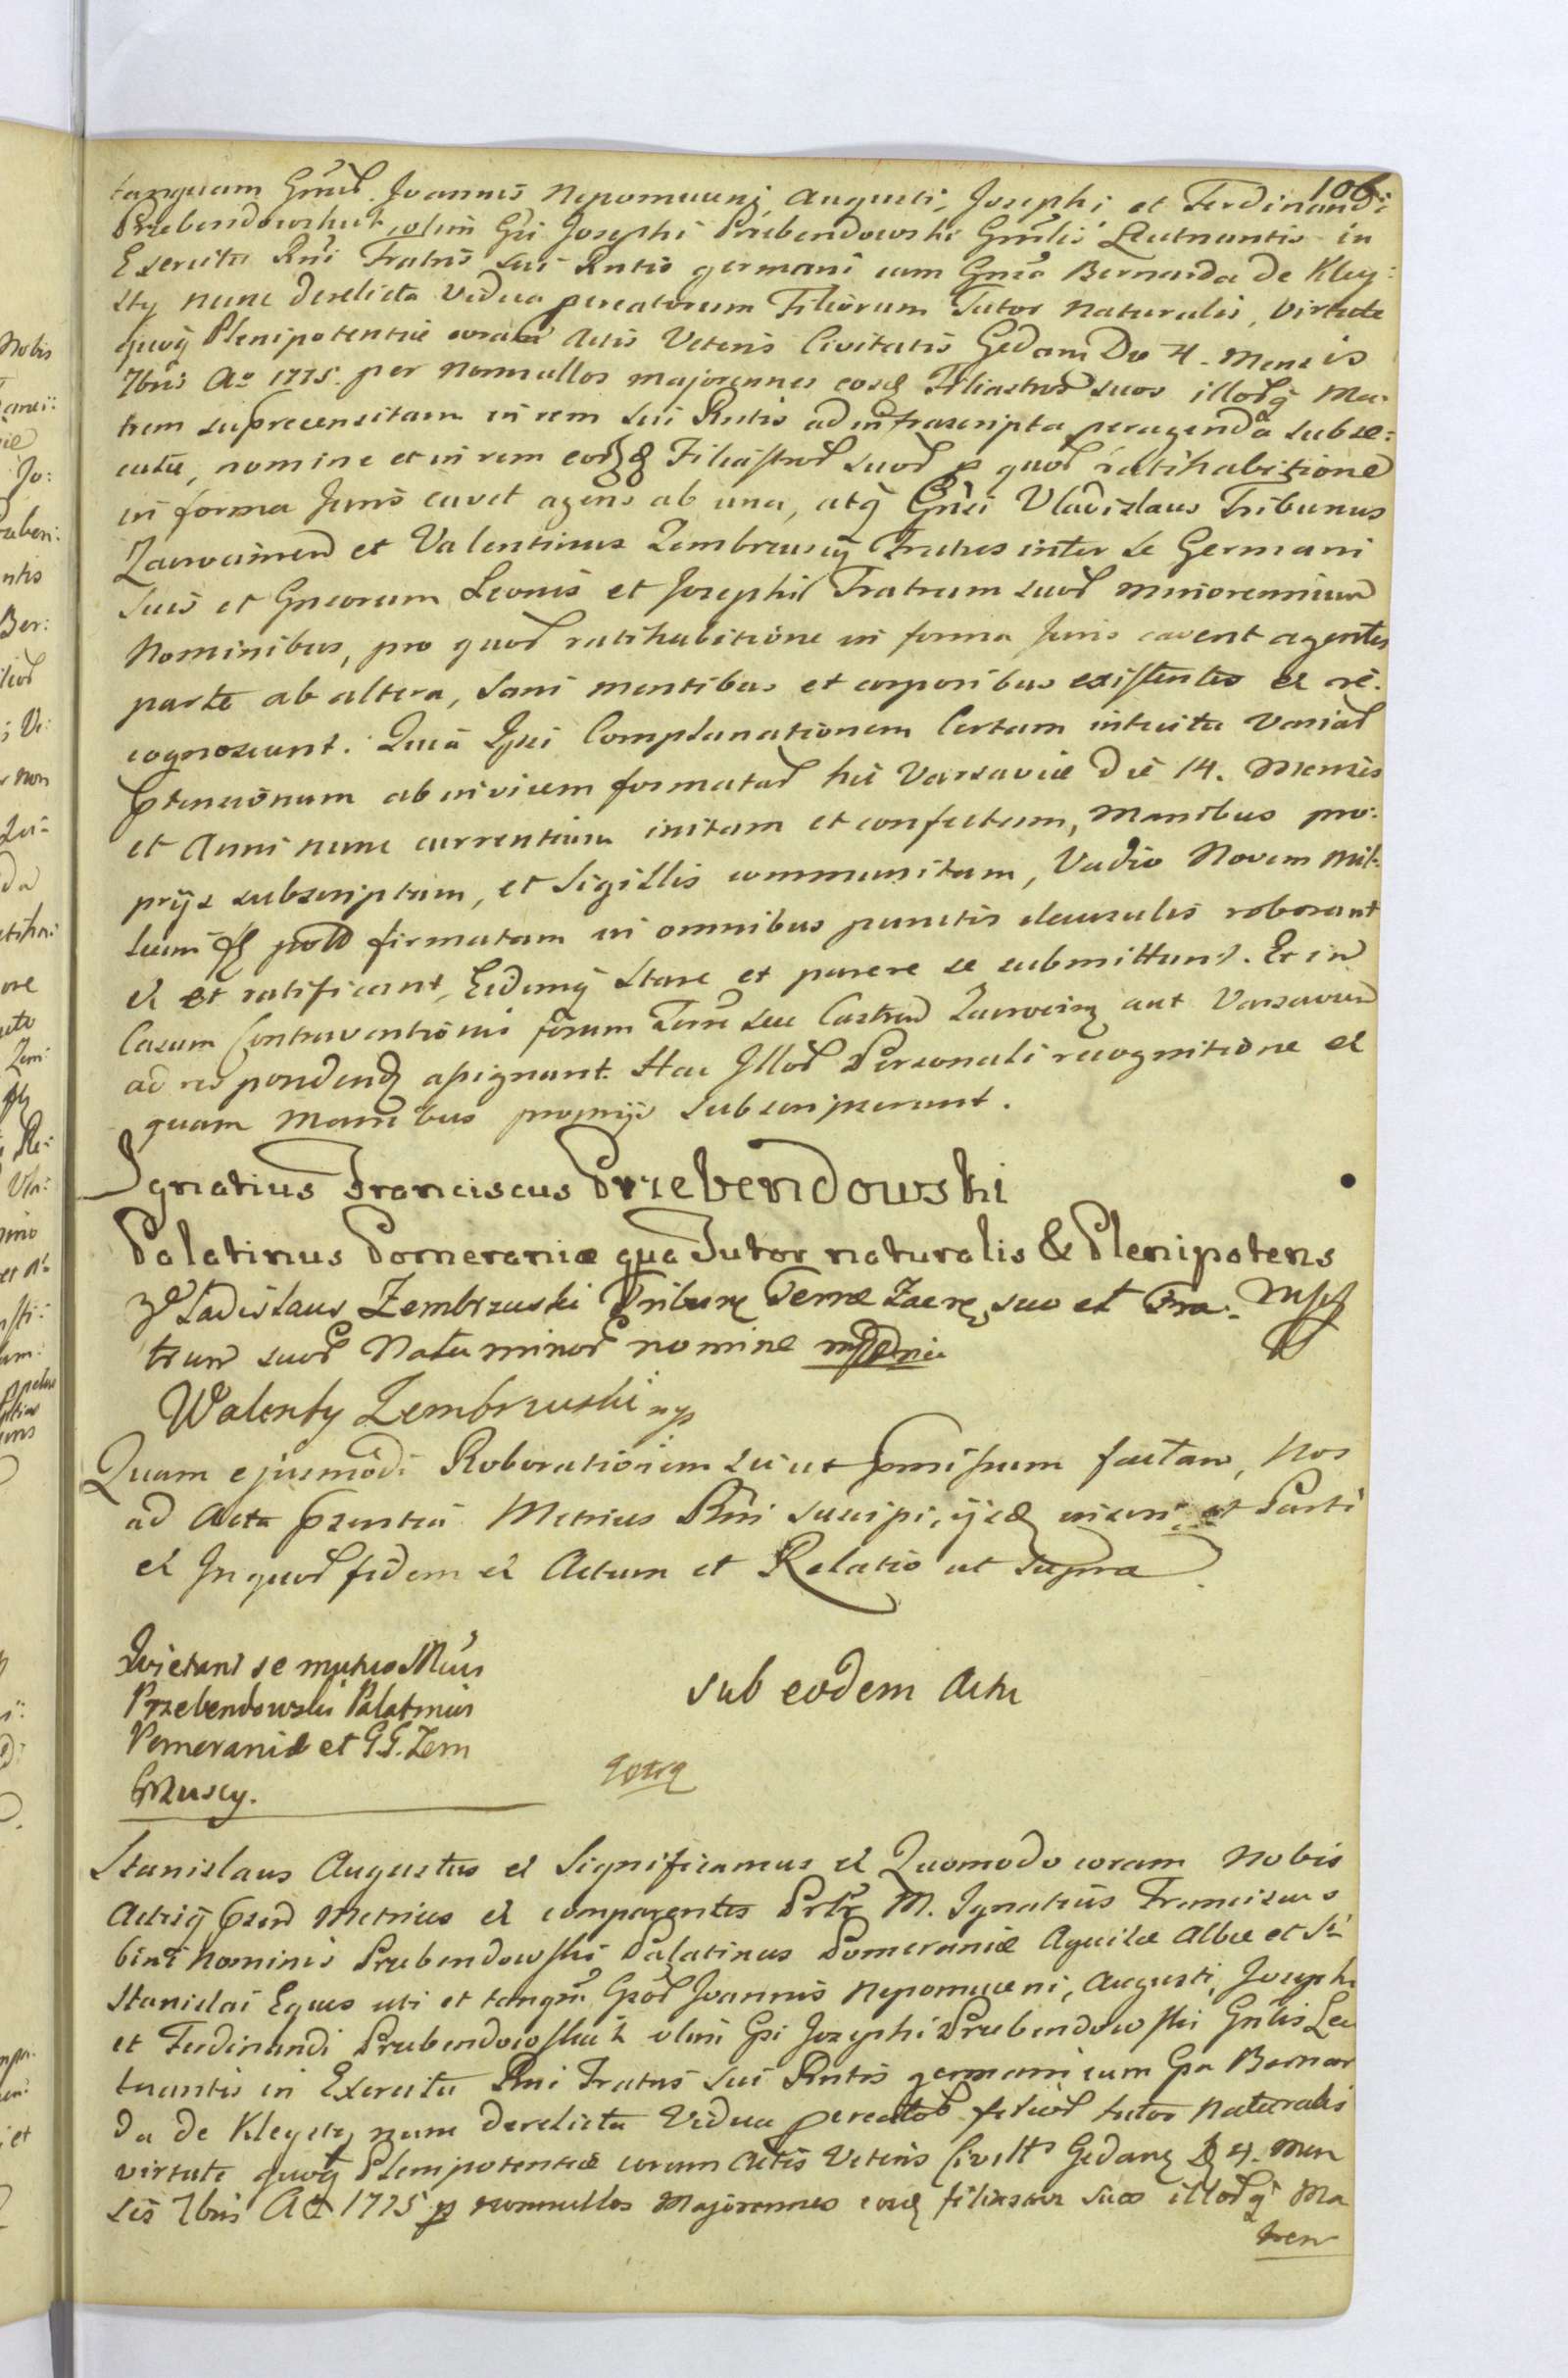 106
tanquam Gnrod. Joannis Nepomuceni, Augusti, Josephi et Ferdinandi
Przebendowskich olim Gsi Josephi Przebendowski Gnrlis Leutnantis in
Exercitu Rni Fratris sui Rntis germani cum Gnsa Bernarda de Kley:
sty nunc derelicta Vidua procreatorum Filiorum Tutor Naturalis, virtute
quoq Plenipotentiæ coram Actis Veteris Civitatis Gedan Die 4. Mensis
7bris Ao 1775. per nonnullos majorennes eosq Filiastros suos illorq Ma:
trem suprecensitam in rem sui Rntis ad infrascripta peragenda subse:
cutæ, nomine et in rem eorq Filiastror suor p quor ratihabitione
in forma Juris cavet agens ab una, atq Gnsi Vladislaus Tribunus
Zacrocimen et Valentinus Zembrzuscy Fratres inter se Germani
suis et Gnsorum Leonis et Josephi Fratrum suor minorennium
Nominibus, pro quor ratihabitione in forma Juris cavent agentes
parte ab altera, sani mentibus et corporibus existentes et re:
cognoscunt. Quia Ipsi Complanationem Certam intuitu variar
Ptensionum ab invicem formatar hic Varsaviæ Die 14. Mensis
et Anni nunc currentium initam et confectam, Manibus pro:
prijs subscriptam, et Sigillis communitam, Vadio Novem Mil:
lium fl pold firmatam in omnibus punctis clausulis roborant
et et ratificant, Eidemq stare et parere se submittunt. Et in
Casum Contraventionis forum Terre seu Castren Zacrocim aut Varsavien
ad respondendq assignant. Hac Illor Personali recognitione et
quam Manibus proprijs subscripserunt.
Ignatius Franciscus Przebendowski
Palatinus Pomeraniæ qua Tutor naturalis & Plenipotens
mpp
Wladislaus Zembrzuski Tribunq Terræ Zacrq suo et Fra:
trum suor Natu minor nomine mppria
Walenty Zembrzuski mp
Quam ejusmodi Roborationem sic ut pmissum factam, Nos
ad Acta Pzentia Metrices Rni suscipi, ijsq et Parti
et In quor fidem et Actum et Relatio ut supra
Qvietant se mutuo Mcus
Przebendowski Palatinus
Pomeraniæ et G.G. Zem
brzuscy.
sub eodem Actu
Stanislaus Augustus et Significamus et Quomodo coram Nobis
Actisq Pzen Metrices et comparentes M. Ignatius Franciscus
bini Nominis Przebendowski Palatinus Pomeraniæ Aquilæ Albæ et Sti
Stanislai Eques uti et tanqm Gsor Joannis Nepomuceni, Augusti, Josephi
et Ferdinandi Przebendowskich olim Gsi Josephi Przebendowski Gnlis Leu
tnantis in Exercitu Rni Fratris sui Rntis germani cum Gsa Bernar
da de Kleysty nunc derelicta Vidua pcreator filior tutor Naturalis
virtute quoq Plenipotentiæ coram Actis Veteris Civitts Gedanq D 4. Men
sis 7bris Ao 1775 p nonnullos Majorennes eosq filiastros suos illorq Ma
trem